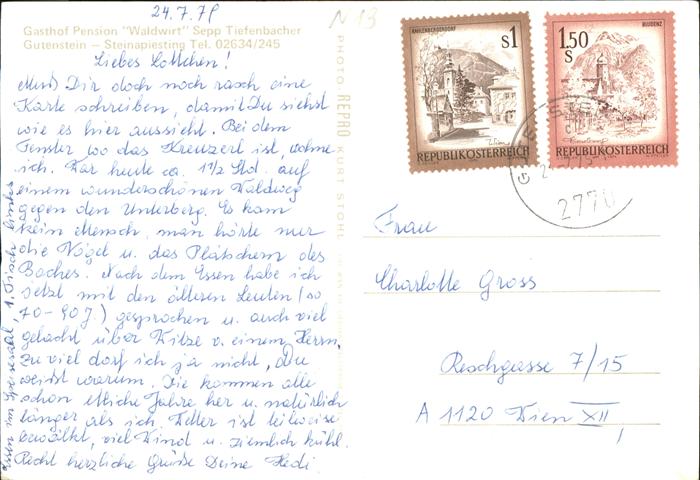 24.7.78
N 13
Gasthof Pension "Waldwirt" Sepp Tiefenbacher
Gutenstein – Steinapiesting Tel. 02634/245
Liebes Lottchen!
Muß Dir doch noch rasch eine
Karte schreiben, damit Du siehst
wie es hier aussieht. Bei dem
Fenster wo das Kreuzerl ist, wohne
ich. War heute ca. 1 1/2 Std. auf
einem wunderschönen Waldweg
gegen den Unterberg. Es kam
kein Mensch, man hörte nur
die Vögel u. das Plätschern des
Baches. Nach dem Essen habe ich
jetzt mit den älteren Leuten (so
70-90 J) gesprochen u. auch viel
gelacht über Witze v. einem Herrn.
Zu viel darf ich ja nicht, du
weißt warum. Die kommen alle
schon etliche Jahre her u. natürlich
länger als ich. Wetter ist teilweise
bewölkt, viel Wind u. ziemlich kühl.
Recht herzliche Grüße Deine Hedi
Essen im Speisesaal, 1. Tisch links
PHOTO REPRO KURT STOHL
AHRENBERGERDORF
S1
REPUBLIK ÖSTERREICH
BLUDENZ
1.50
S
REPUBLIK ÖSTERREICH
2770
Frau
Charlotte Gross
Reschgasse 7/15
A 1120 Wien XII,